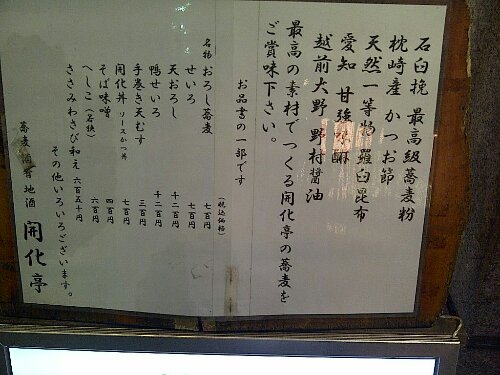 石臼挽 最高級蕎麦粉
枕崎産 かつお節
天然一等物 羅臼昆布
愛知 甘強味醂
越前大野 野村醤油
最高の素材でつくる開化亭の蕎麦を
ご賞味下さい。
お品書の一部です
(税込価格)
名物 おろし蕎麦 七百円
せいろ 七百円
天おろし 十二百円
鴨せいろ 十二百円
手巻き天むす 三百円
開化丼 ソースかつ丼 七百円
そば味噌 四百円
へしこ(若狭) 六百円
ささみわさび和え 六百五十円
その他いろいろございます。
蕎麦 酒肴 地酒 開化亭